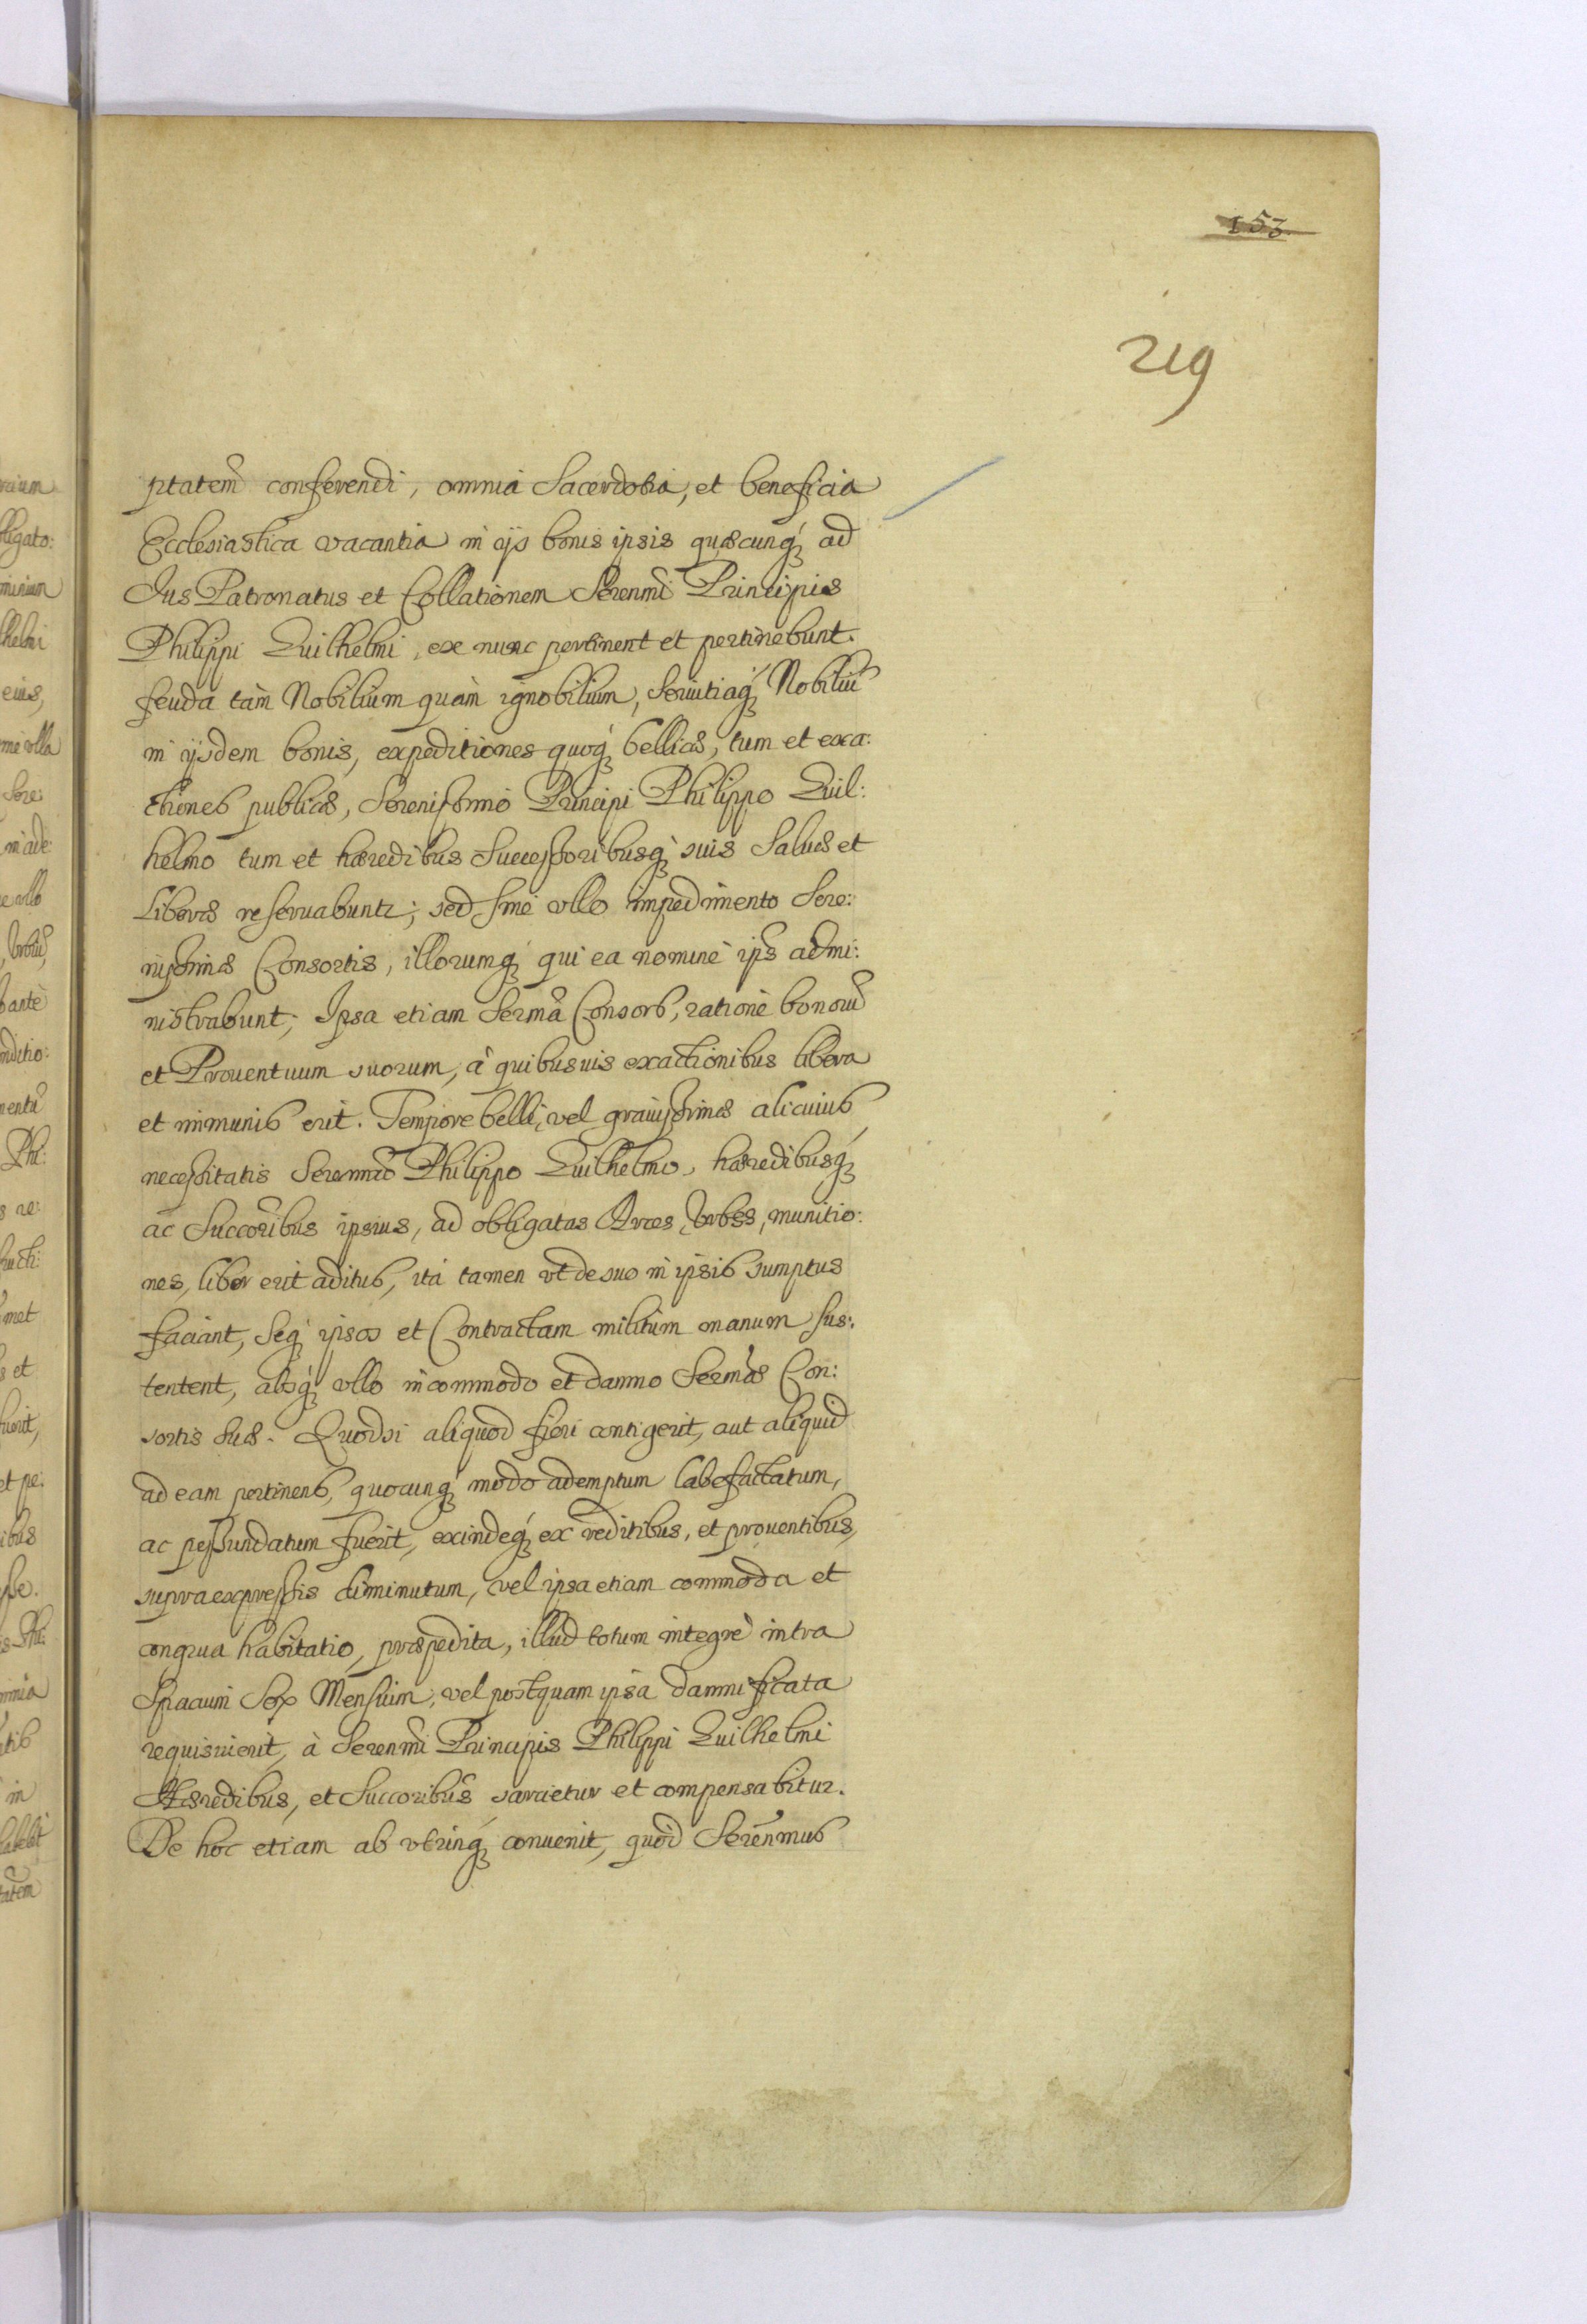 153.
219
ptatem conferendi, omnia Sacerdotia, et beneficia
Ecclesiastica vacantia in ijs bonis ipsis quæcunq́; ad
Jus Patronatus et Collationem Serenmi Principis
Philippi Guilhelmi, ex nunc pertinent et pertinebunt.
feuda tàm Nobilium quàm ignobilium, Seruitiaq́; Nobiliũ
in ijsdem bonis, expeditiones quoq́; bellicæ, tum et exa:
ctiones publicæ, Serenissimo Principi Philippo Guil:
helmo tum et hæredibus Successoribusq́; suis Saluæ et
Liberæ reseruabuntr; sed sine vllo impedimento Sere:
nissimæ Consortis, illorumq́; qui ea nomine ips admi:
nistrabunt, Ipsa etiam Serma Consors, ratione bonorũ
et Prouentuum suorum, à quibusuis exactionibus libera
et immunis erit. Tempore belli, vel grauissimæ alicuius
necessitatis Serenmo Philippo Guilhelmo, hæredibusq́;
ac Succoribus ipsius, ad obligatas Arces, Vrbes, munitio:
nes, liber erit aditus, ità tamen vt de suo in ipsis sumptus
faciant, Seq́; ipsos et Contractam militum manum sus:
tentent, absq́; vllo incommodo et damno Sermæ Con:
sortis suæ. Quodsi aliquod fieri contigerit, aut aliquid
ad eam pertinens, quocunq́; modo ademptum labefactatum,
ac pessundatum fuerit, exindeq́; ex reditibus, et prouentibus,
supra expressis diminutum, vel ipsa etiam commoda et
congrua habitatio, præpedita, illud totum integrè intra
Spacium Sex Mensium, vel postquam ipsa damnificata
requisiuerit, à Serenmi Principis Philippi Guilhelmi
Hæredibus, et Succoribus sarcietur et compensabitur.
De hoc etiam ab vtrinq́; conuenit, quòd Serenmus